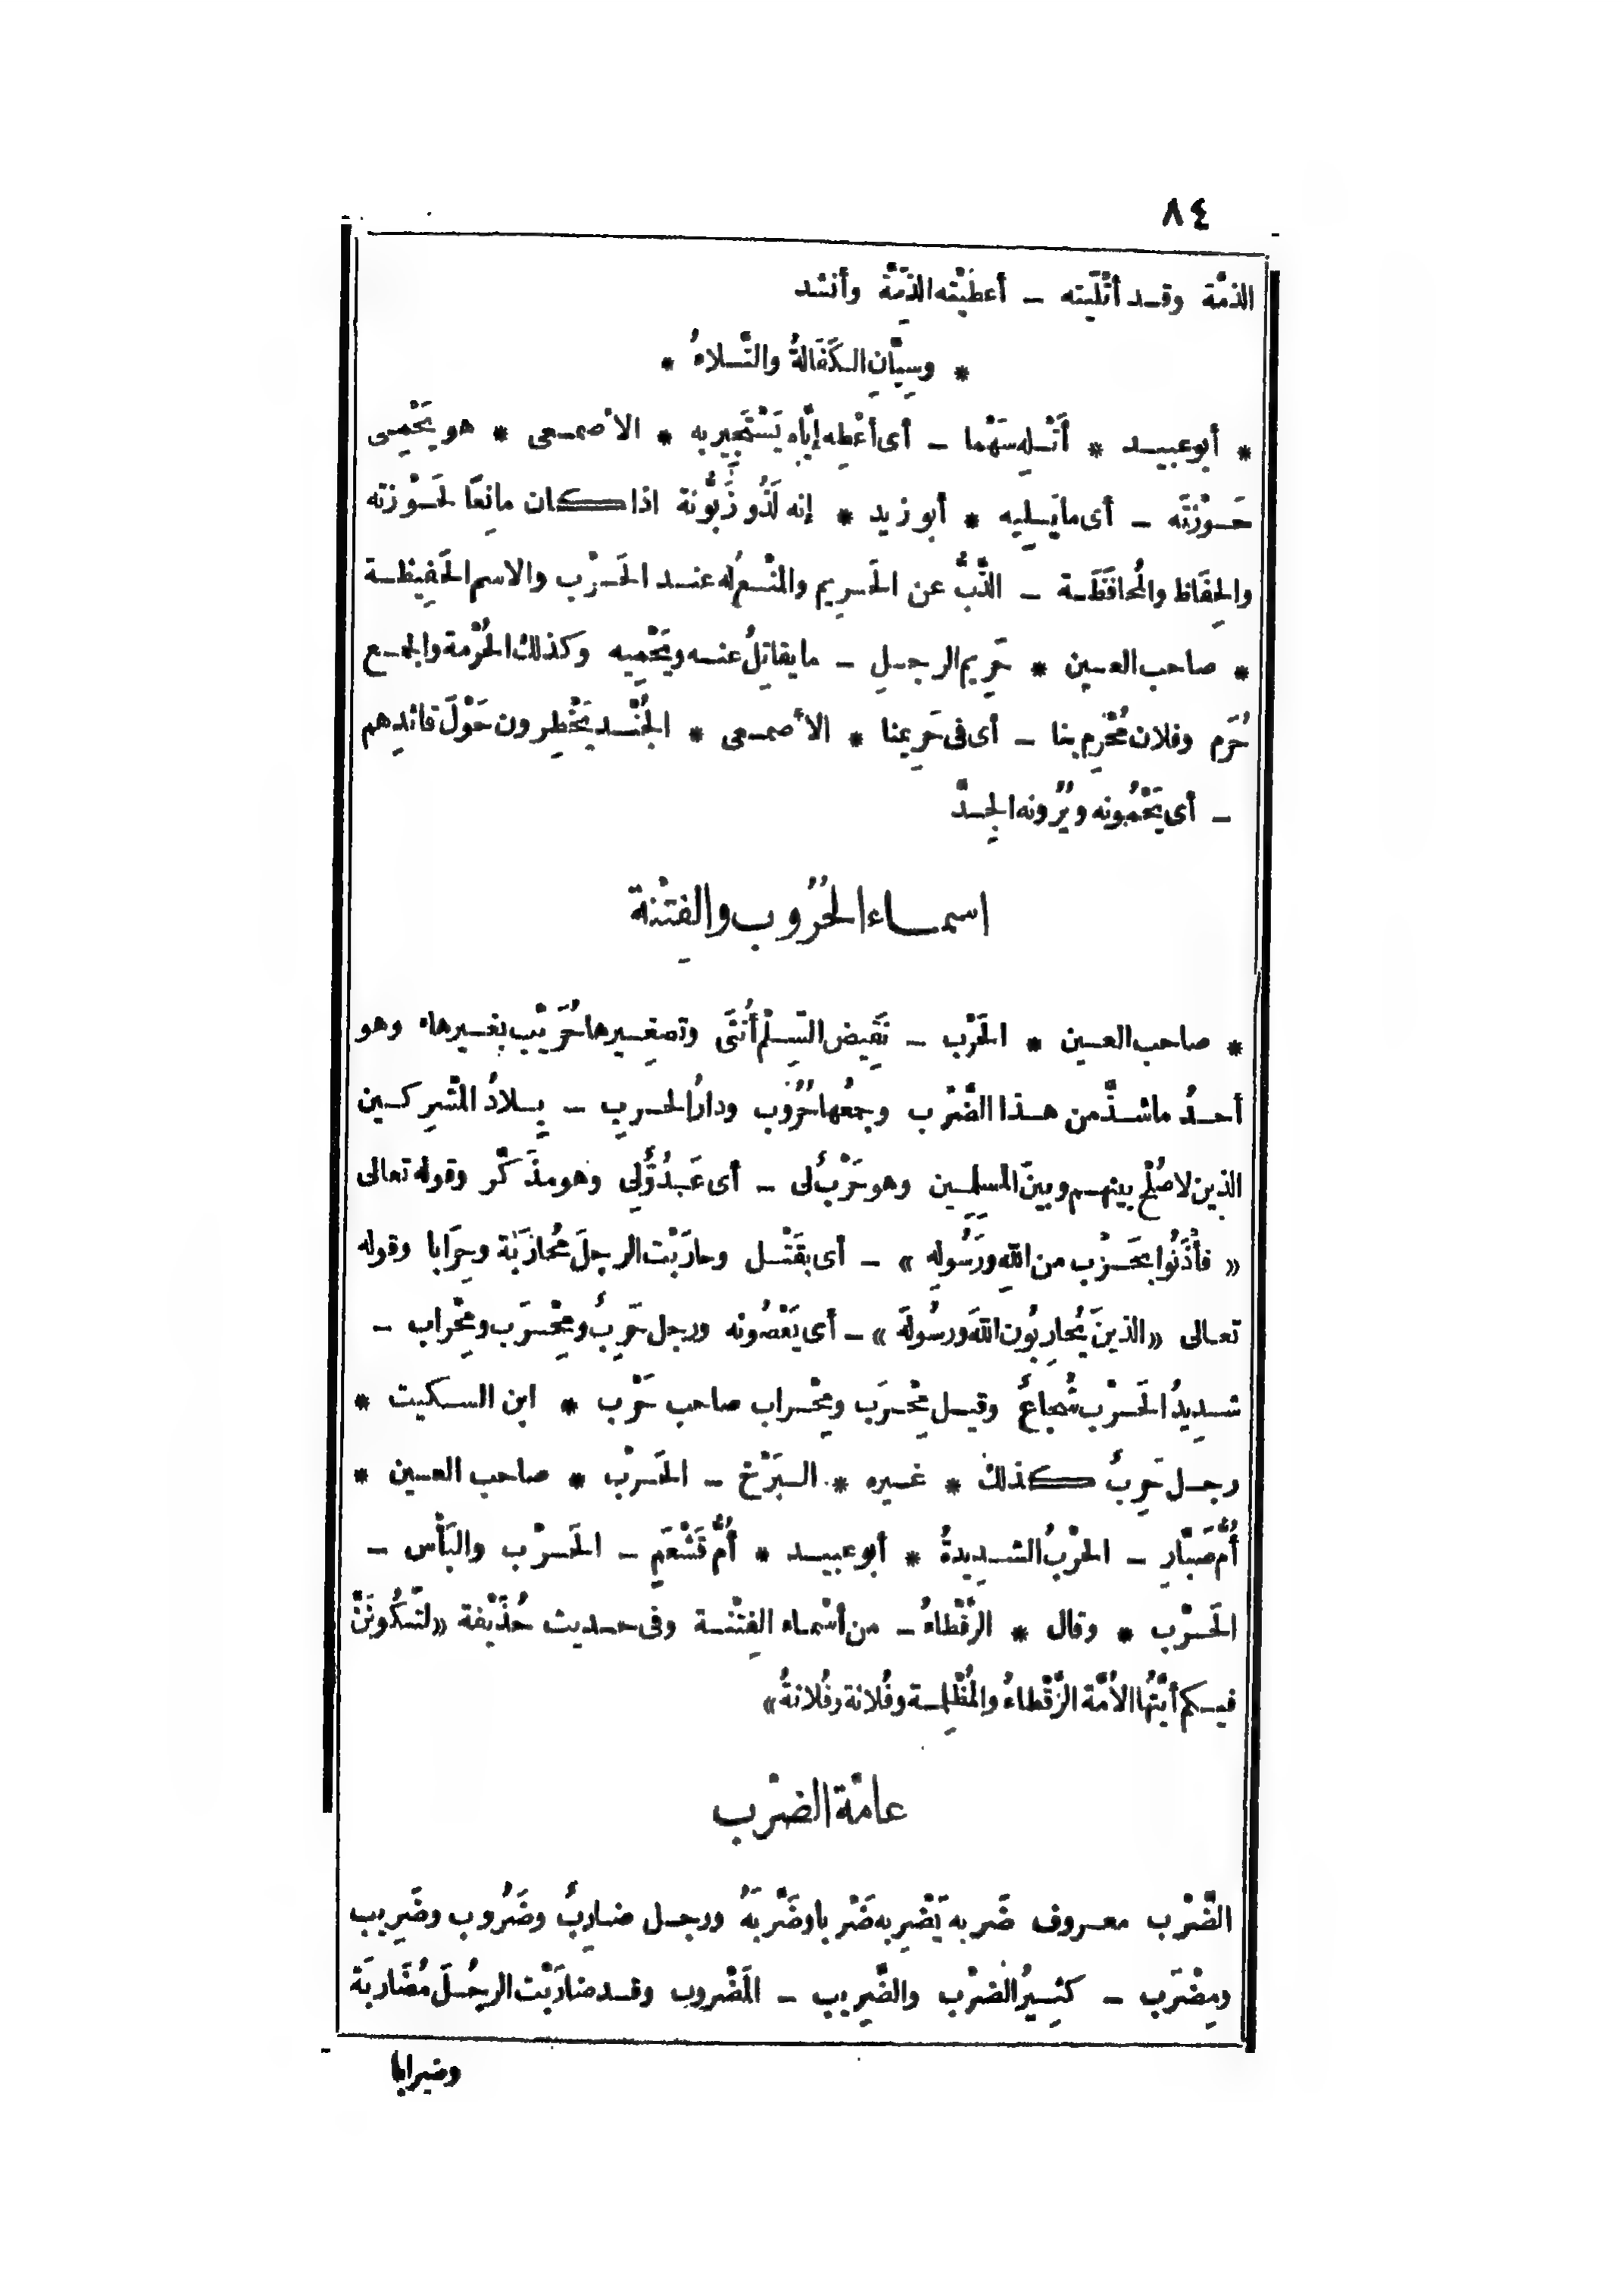 ٨٤
الذمَّة وقد أتْلَيته ـ أعطَيْته الذِّمَّةَ وأنشد
* وسِيَّانِ الكَفَالةُ والتَّلاءُ *
* أبو عبيد * أَتْلِه سَهْما ـ أى أعْطِه إيَّاه يَسْتَجِيربه * الأصمعى * هو يَحْمِى
حَوْزَتَه ـ أى مايَلِيه * أبو زيد * إنه لَذُو زَبُّونة اذا كان مانِعًا لحَوْزته
والحِفَاظ والمُحافَظَة ـ الذَّبُّ عن الحَرِيم والمنْعُ له عند الحَرْب والاسم الحَفِيظة
* صاحب العين * حَرِيم الرجلِ ـ مايقاتِلُ عنه ويَحْمِيه وكذلك الحُرْمة والجمع
حُرَم وفلان مُحْرِم بنا ـ أى فى حَرِيمنا * الأصمعى * الجُنْد يَخْطِرون حَوْلَ قائدِهم
ـ أى يَحْمُونه ويُرُونه الجِدَّ
اسماء الحُرُوب والفِتْنة
* صاحب العين * الحَرْب ـ نَقِيض السِّلْم أُنثَى وتصغيرها حُرَيْب بغيرهاء وهو
أحدُ ماشذَّ من هذا الضَّرْب وجمعُها حُرُوب ودارُ الحربِ ـ بِلادُ المُشرِكين
الذين لاصُلْح بينهم وبين المسلمِين وهو حَرْبٌ لى ـ أى عَدُوٌّ لى وهو مذَكَّر وقوله تعالى
« فأْذَنُوا بحَرْب من اللهِ ورَسُولِه » ـ أى بقَتْل وحارَبْت الرجلَ مُحارَبة وحِرَابا وقوله
تعالى « الذينَ يُحارِبُون اللهَ ورسُولَه » ـ أى يَعْصُونه ورجل حَرِبٌ ومِحْرَب ومِحْراب ـ
شدِيدُ الحَرْب شُجاعٌ وقيل مِحْرَب ومِحْراب صاحب حَرْب * ابن السكيت *
رجل حَرِبٌ كذلك * غيره * البَرْخ ـ الحَرْب * صاحب العين *
أُمُّ صَبَّارِ ـ الحرْبُ الشدِيدةُ * أبو عبيد * أُمُّ قَشْعَمٍ ـ الحَرْب والبَأْس ـ
الحَرْب * وقال * الرَّقْطاءُ ـ من أسْماء الفِتْنة وفى حديث حُذَيْفة « لتَكُونَنَّ
فيكم أيَّتُها الأُمَّة الرَّقْطاءُ والمُظْلِمة وفُلانة وفُلانةُ »
عامَّة الضرْب
الضَّرْب معروف ضَربه يَضْرِبه ضَرْبا وضَرَّبَهُ ورجل ضارِبٌ وضَرُوب وضَرِيب
ومِضْرَب ـ كثِيرُ الضرْب والضَّرِيب ـ المَضْروب وقد ضارَبْت الرجُلَ مُضَاربَة
وضرابا